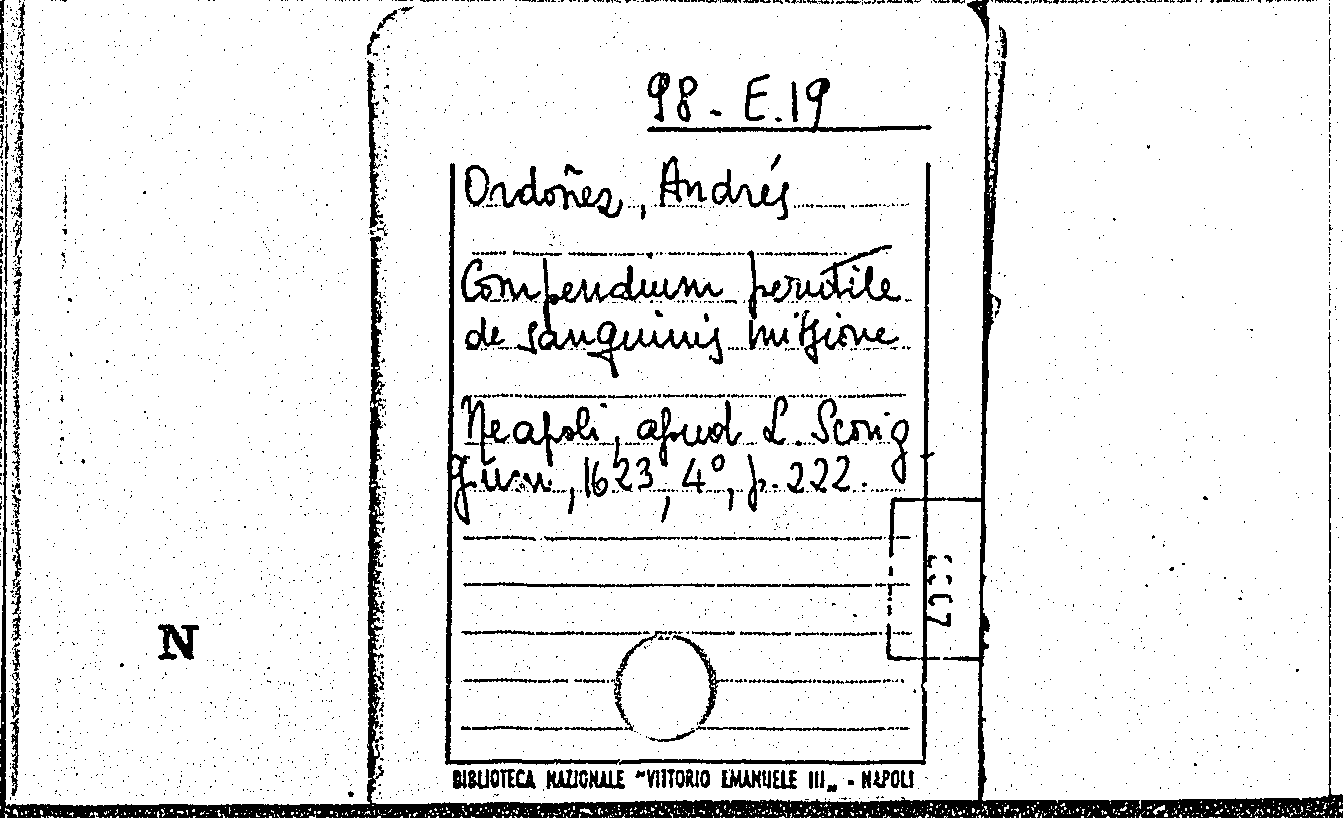 98-E.19
Ordoñez, Andrés
Compendium perutile
de sanguinis missione
Neapoli, apud L. Scorig
gium, 1623, 4º, p. 222.
N
BIBLIOTECA NAZIONALE "VITTORIO EMANUELE III„ - NAPOLI